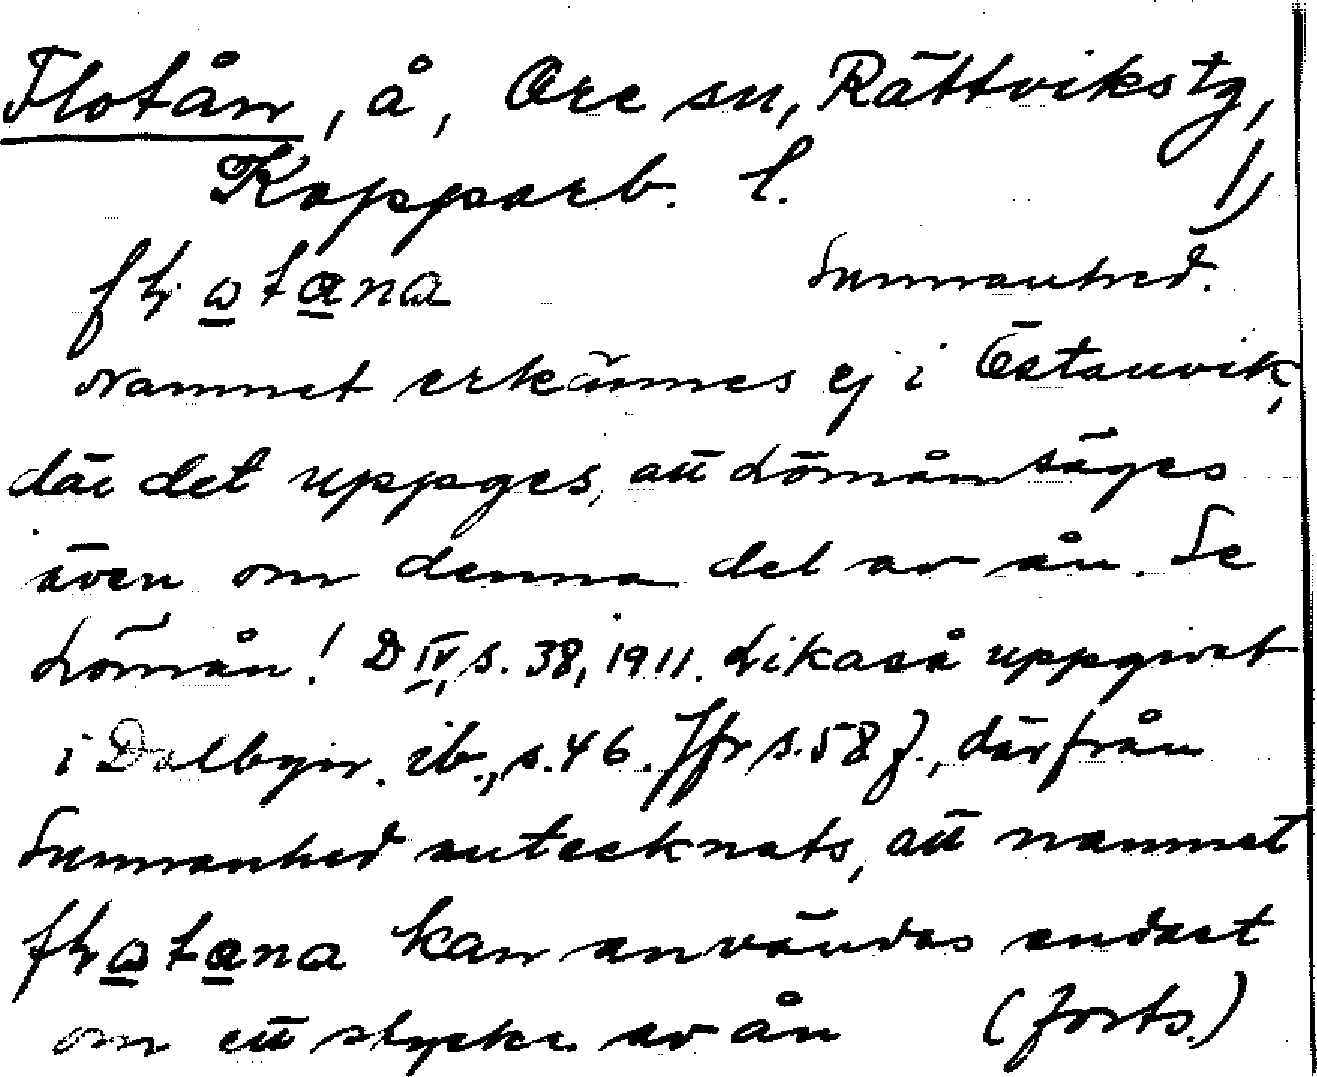 Flotån, å, Ore sn, Rättvikstg,
Kopparb. l. 1)
Sunnanhed.
Namnet erkännes ej i Östanvik,
där det uppges, att Lömån säges
även om denna del av ån. Se
Lömån! D IV, s. 38, 1911. Likaså uppgivet
i Dalbyn. ib., s. 46. Jfr s. 58 f., därfrån
Sunnanhed antecknats, att namnet
kan användas endast
om ett stycke av ån (forts.)